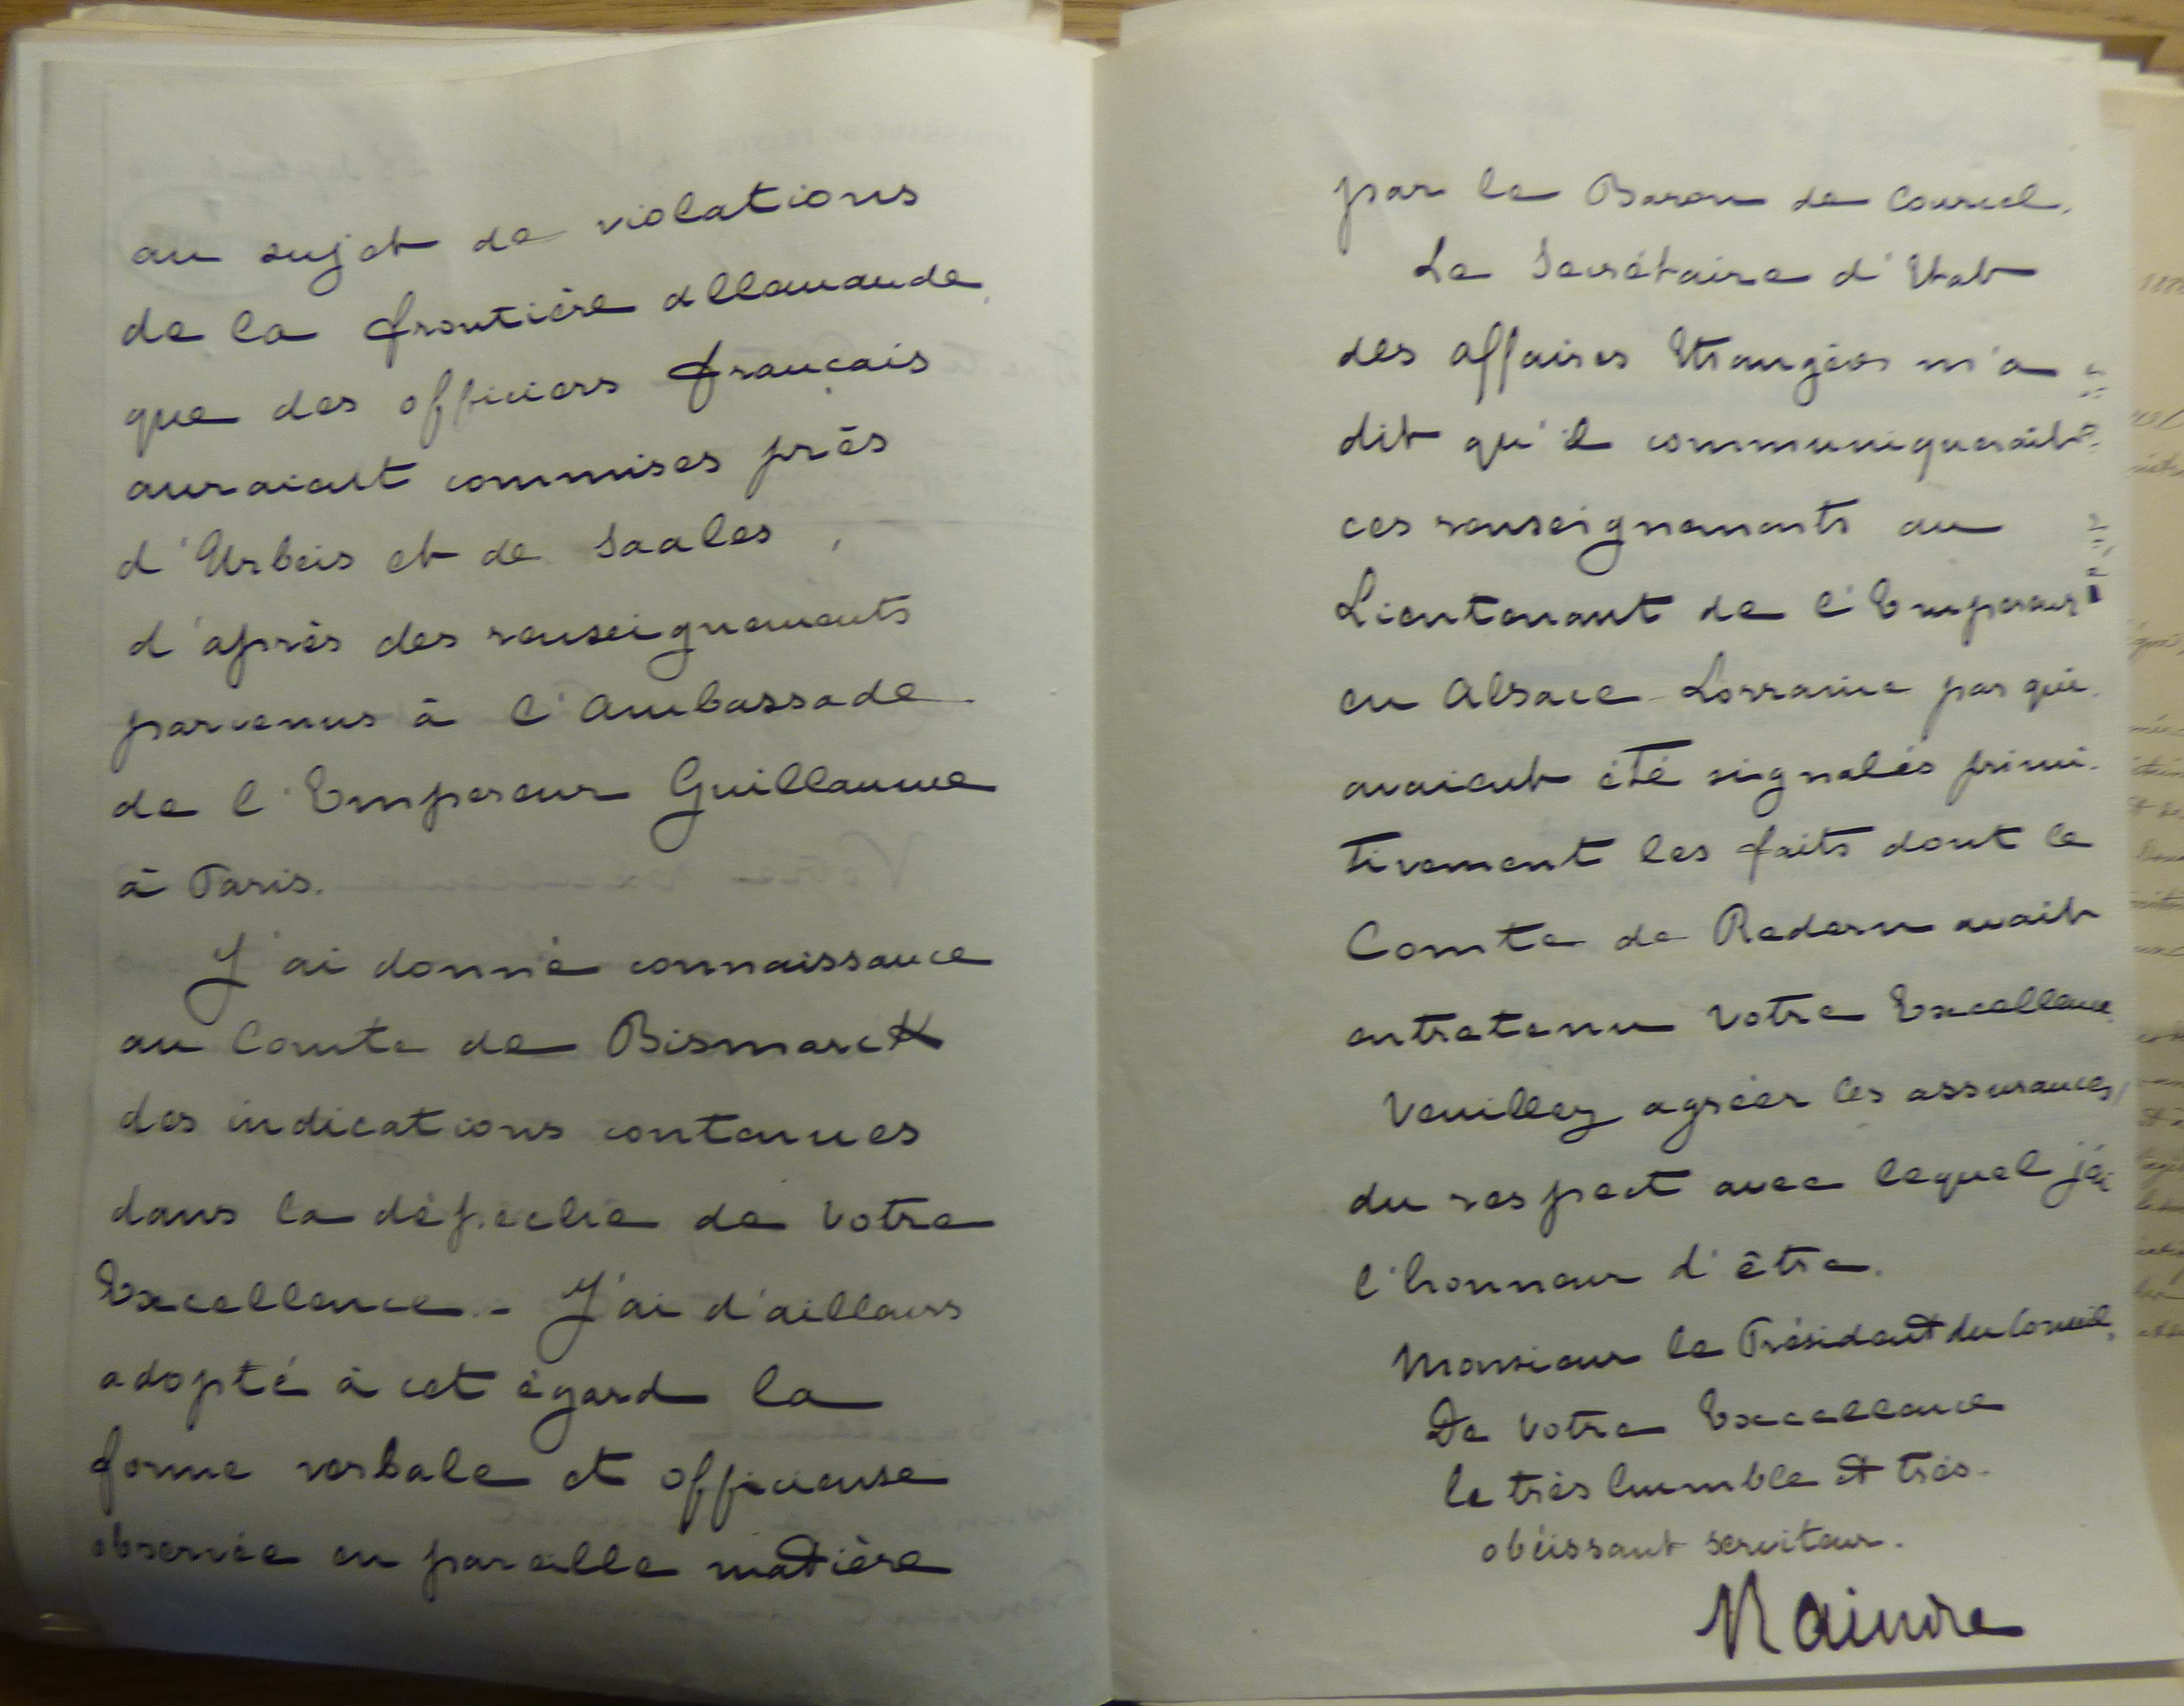 au sujet de violations
de la frontière allemande
que des officiers français
auraient commises près
d'Urbeis et de Saales,
d'après des renseignements
parvenus à l'Ambassade
de l'Empereur Guillaume
à Paris.
J'ai donné connaissance
au Comte de Bismarck
des indications contenues
dans la dépêche de Votre
Excellence. - J'ai d'ailleurs
adopté à cet égard la
forme verbale et officieuse
observée en pareille matière
par le Baron de Courcel.
Le Secrétaire d'Etat
des affaires Etrangères m'a
dit qu'il communiquerait
ces renseignements au
Lieutenant de l'Empereur
en Alsace-Lorraine par qui
avaient été signalés primi-
tivement les faits dont le
Comte de Redern avait
entretenu Votre Excellence
Veuillez agréer les assurances
du respect avec lequel j'ai
l'honneur d'être.
Monsieur le Président du Conseil,
De Votre Excellence
le très humble et très-
obéissant serviteur.
Raindre